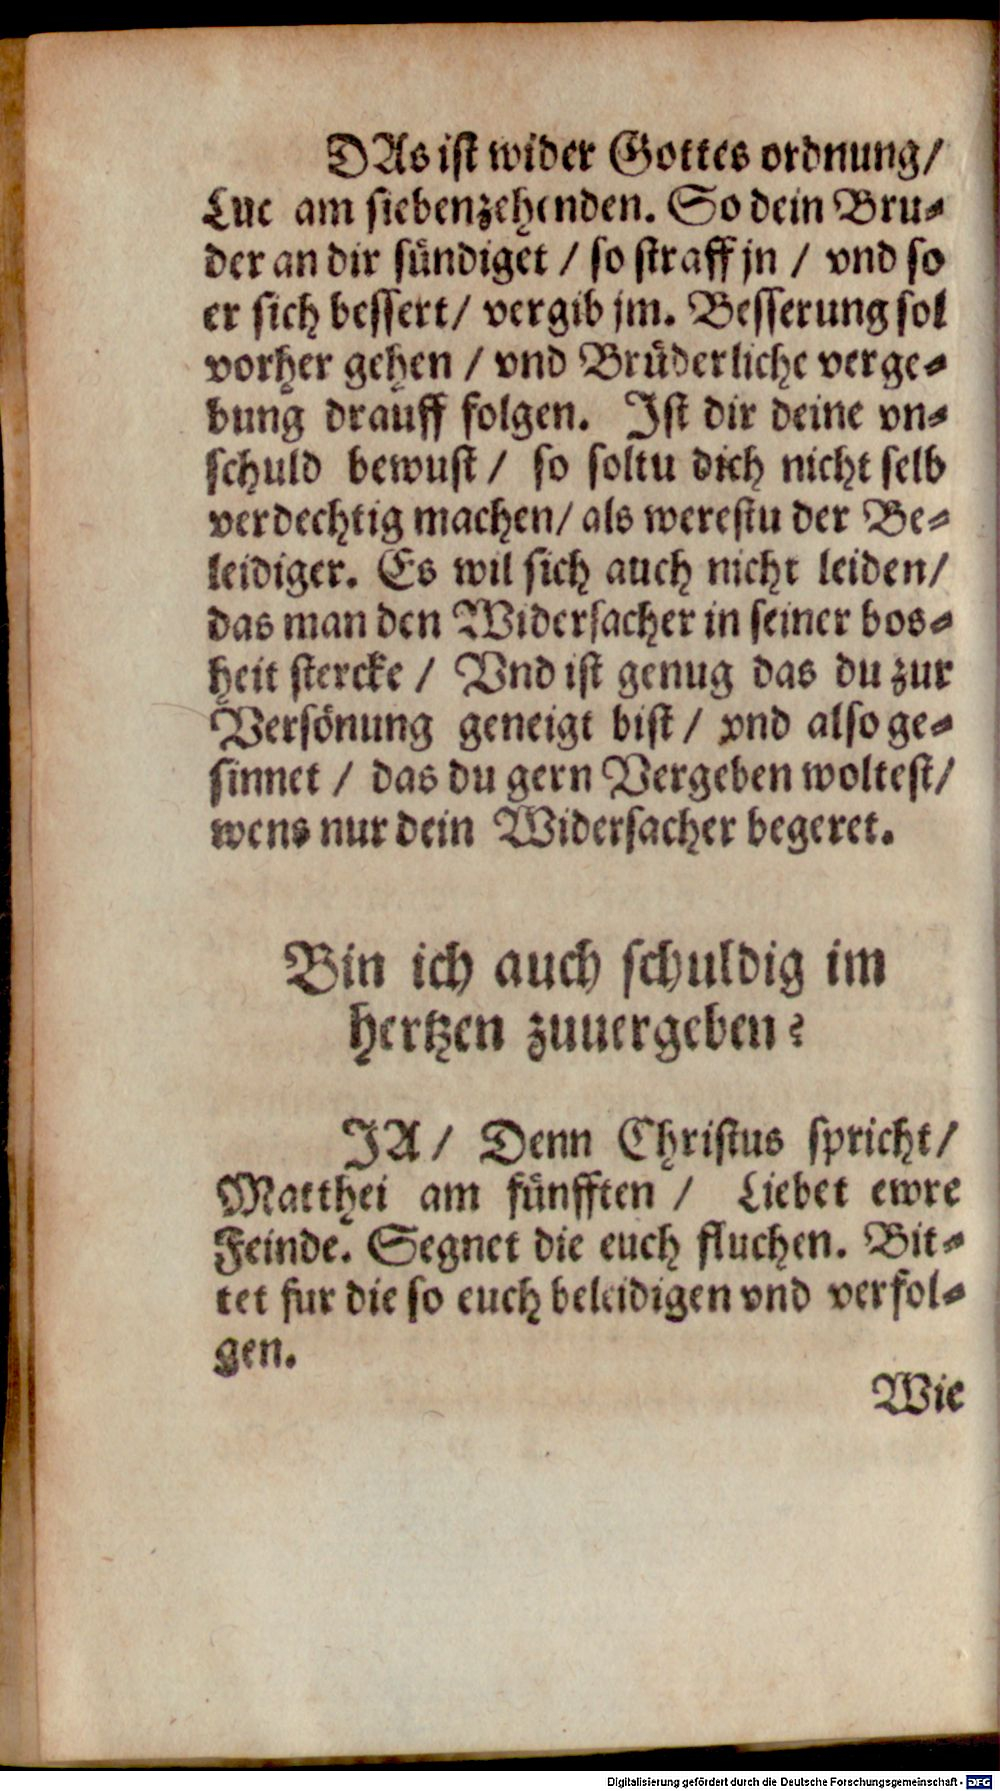 DAs ist wider Gottes ordnung/
Luc am siebenzehenden. So dein Bru⸗
der an dir sündiget / so straff jn / vnd so
er sich bessert/ vergib jm. Besserung sol
vorher gehen / vnd Brüderliche verge⸗
bung drauff folgen. Ist dir deine vn⸗
schuld bewust / so soltu dich nicht selb
verdechtig machen/ als werestu der Be⸗
leidiger. Es wil sich auch nicht leiden/
das man den Widersacher in seiner bos⸗
heit stercke / Vnd ist genug das du zur
Versönung geneigt bist / vnd also ge⸗
sinnet / das du gern Vergeben woltest/
wens nur dein Widersacher begeret.
Bin ich auch schuldig im
hertzen zuuergeben?
JA/ Denn Christus spricht/
Matthei am fünfften / Liebet ewre
Feinde. Segnet die euch fluchen. Bit⸗
tet fur die so euch beleidigen vnd verfol⸗
gen.
Wie
Digitalisierung gefördert durch die Deutsche Forschungsgemeinschaft - DFG